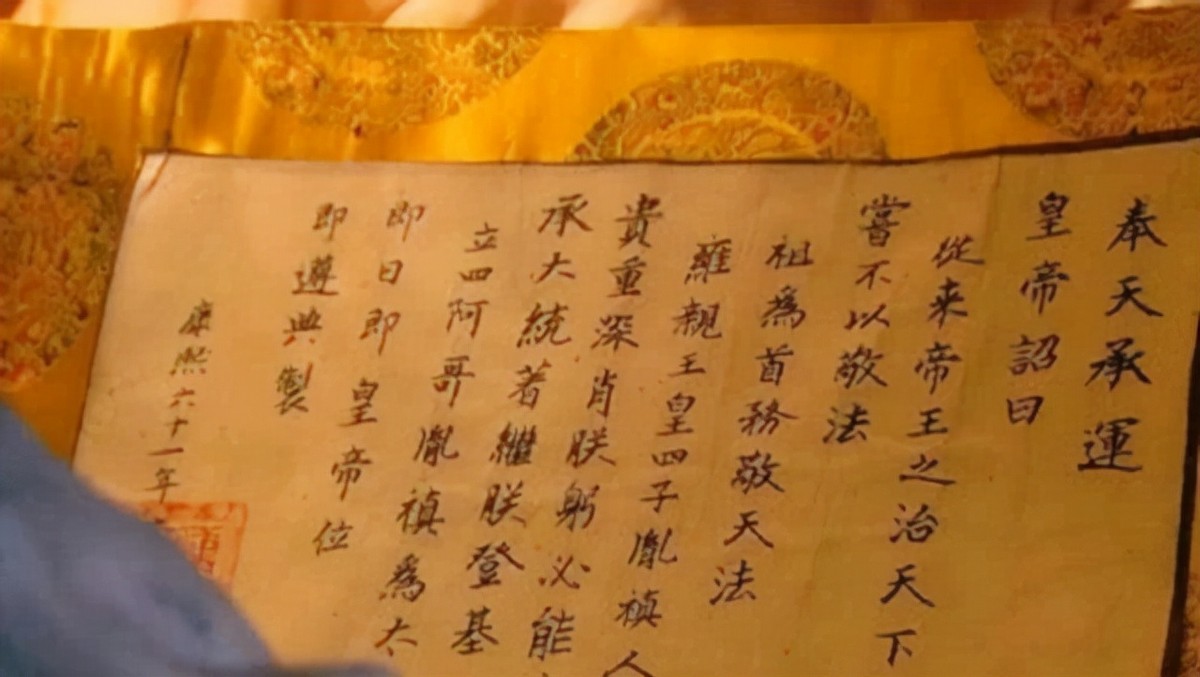 奉天承運
皇帝詔曰
從來帝王之治天下
嘗不以敬法
祖為首務敬天法
雍親王皇四子胤禛人
貴重深肖朕躬必能
承大統著繼朕登基
立四阿哥胤禛為太
即日即皇帝位
即遵典製
康熙六十一年